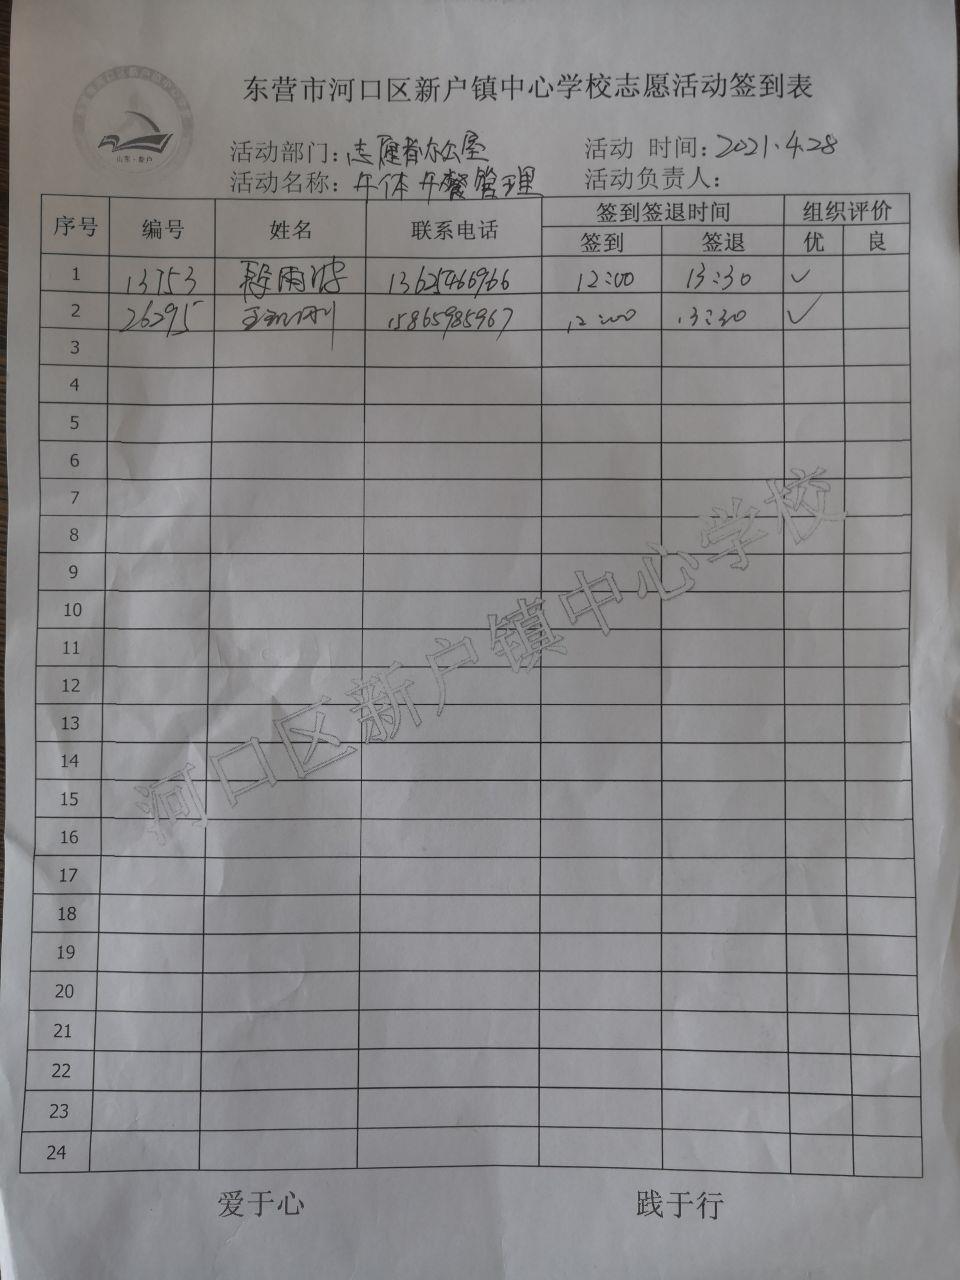 东营市河口区新户镇中心学校志愿活动签到表
山东·新户
活动部门：志愿者办公室 活动 时间：2021.4.28
活动名称：午休午餐管理 活动负责人：
序号 编号 姓名 联系电话 签到签退时间 组织评价
签到 签退 优 良
1 13753 13625466966 12:00 13:30 ✓
2 26295 15865985967 12:00 13:30 ✓
3
4
5
6
7
8
9
10
11
12
13
14
15
16
17
18
19
20
21
22
23
24
河口区新户镇中心学校
爱于心 践于行